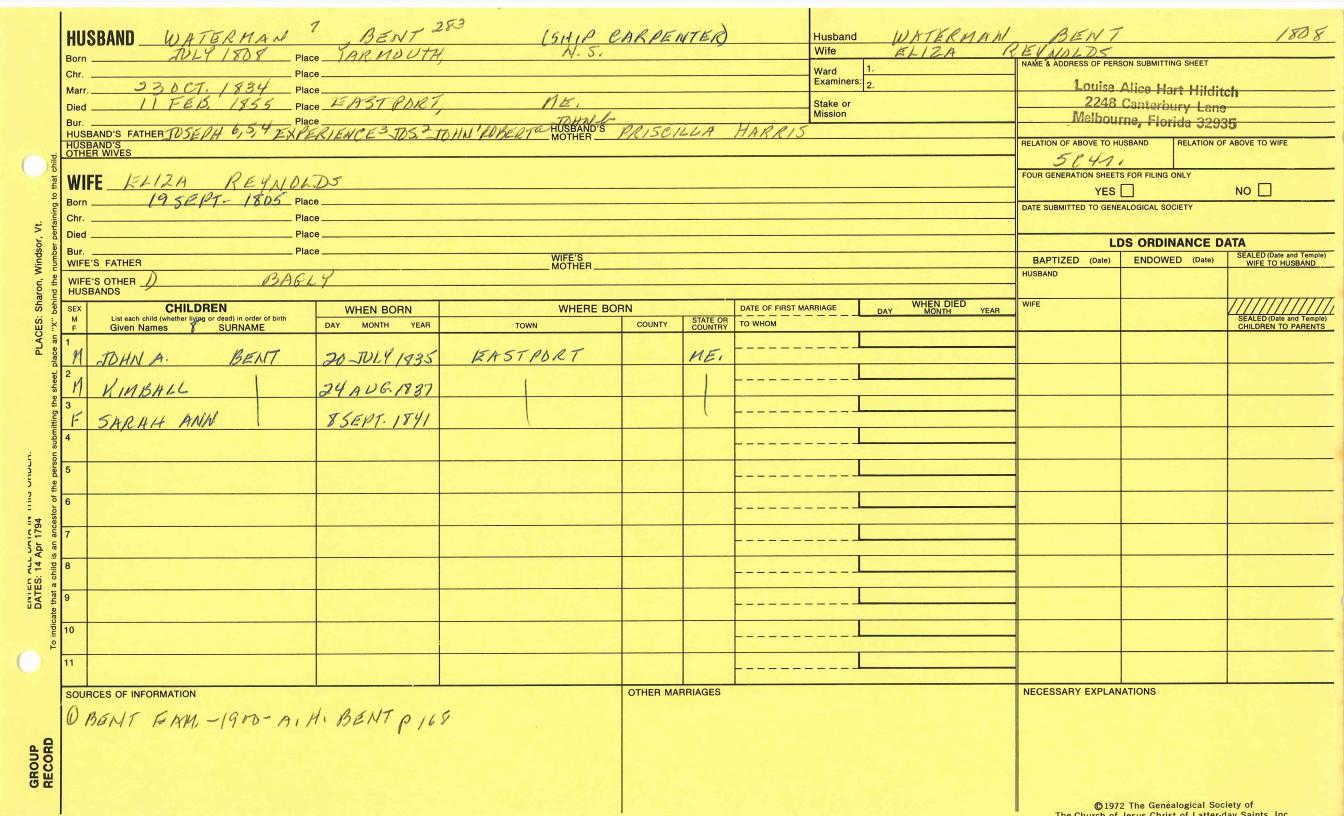 HUSBAND WATERMAN 7 BENT 283 (SHIP CARPENTER)
Born JULY 1808 Place YARMOUTH, N.S.
Chr. Place
Marr. 23 OCT. 1834 Place
Died 11 FEB. 1855 Place EASTPORT, ME.
Bur. Place
HUSBAND'S FATHER JOSEPH 6,5,4 EXPERIENCE 3 JOS 2 JOHN ROBERT JOHN HUSBAND'S MOTHER PRISCILLA HARRIS
HUSBAND'S OTHER WIVES
WIFE ELIZA REYNOLDS
Born 19 SEPT- 1805 Place
Chr. Place
Died Place
Bur. Place
WIFE'S FATHER WIFE'S MOTHER
WIFE'S OTHER HUSBANDS D BAGLY
Husband WATERMAN BENT 1808
Wife ELIZA REYNOLDS
Ward Examiners: 1.
2.
Stake or Mission
NAME & ADDRESS OF PERSON SUBMITTING SHEET
Louise Alice Hart Hilditch
2248 Canterbury Lane
Melbourne, Florida 32935
RELATION OF ABOVE TO HUSBAND RELATION OF ABOVE TO WIFE
FOUR GENERATION SHEETS FOR FILING ONLY
YES NO
DATE SUBMITTED TO GENEALOGICAL SOCIETY
LDS ORDINANCE DATA
BAPTIZED (Date) ENDOWED (Date) SEALED (Date and Temple) WIFE TO HUSBAND
HUSBAND
WIFE
SEALED (Date and Temple) CHILDREN TO PARENTS
SEX M F CHILDREN WHEN BORN WHERE BORN DATE OF FIRST MARRIAGE WHEN DIED
List each child (whether living or dead) in order of birth
Given Names 8 SURNAME DAY MONTH YEAR TOWN COUNTY STATE OR COUNTRY TO WHOM DAY MONTH YEAR
1 M JOHN A. BENT 20 JULY 1835 EASTPORT ME.
2 M KIMBALL 24 AUG. 1837
3 F SARAH ANN 8 SEPT. 1841
4
5
6
7
8
9
10
11
SOURCES OF INFORMATION OTHER MARRIAGES NECESSARY EXPLANATIONS
① BENT FAM. -1900- A. H. BENT p 168
©1972 The Genealogical Society of
The Church of Jesus Christ of Latter-day Saints, Inc.
PLACES: Sharon, Windsor, Vt.
To indicate that a child is an ancestor of the person submitting the sheet, place an "X" behind the number pertaining to that child.
ENTER ALL DATA IN THIS ORDER:
DATES: 14 Apr 1794
GROUP RECORD